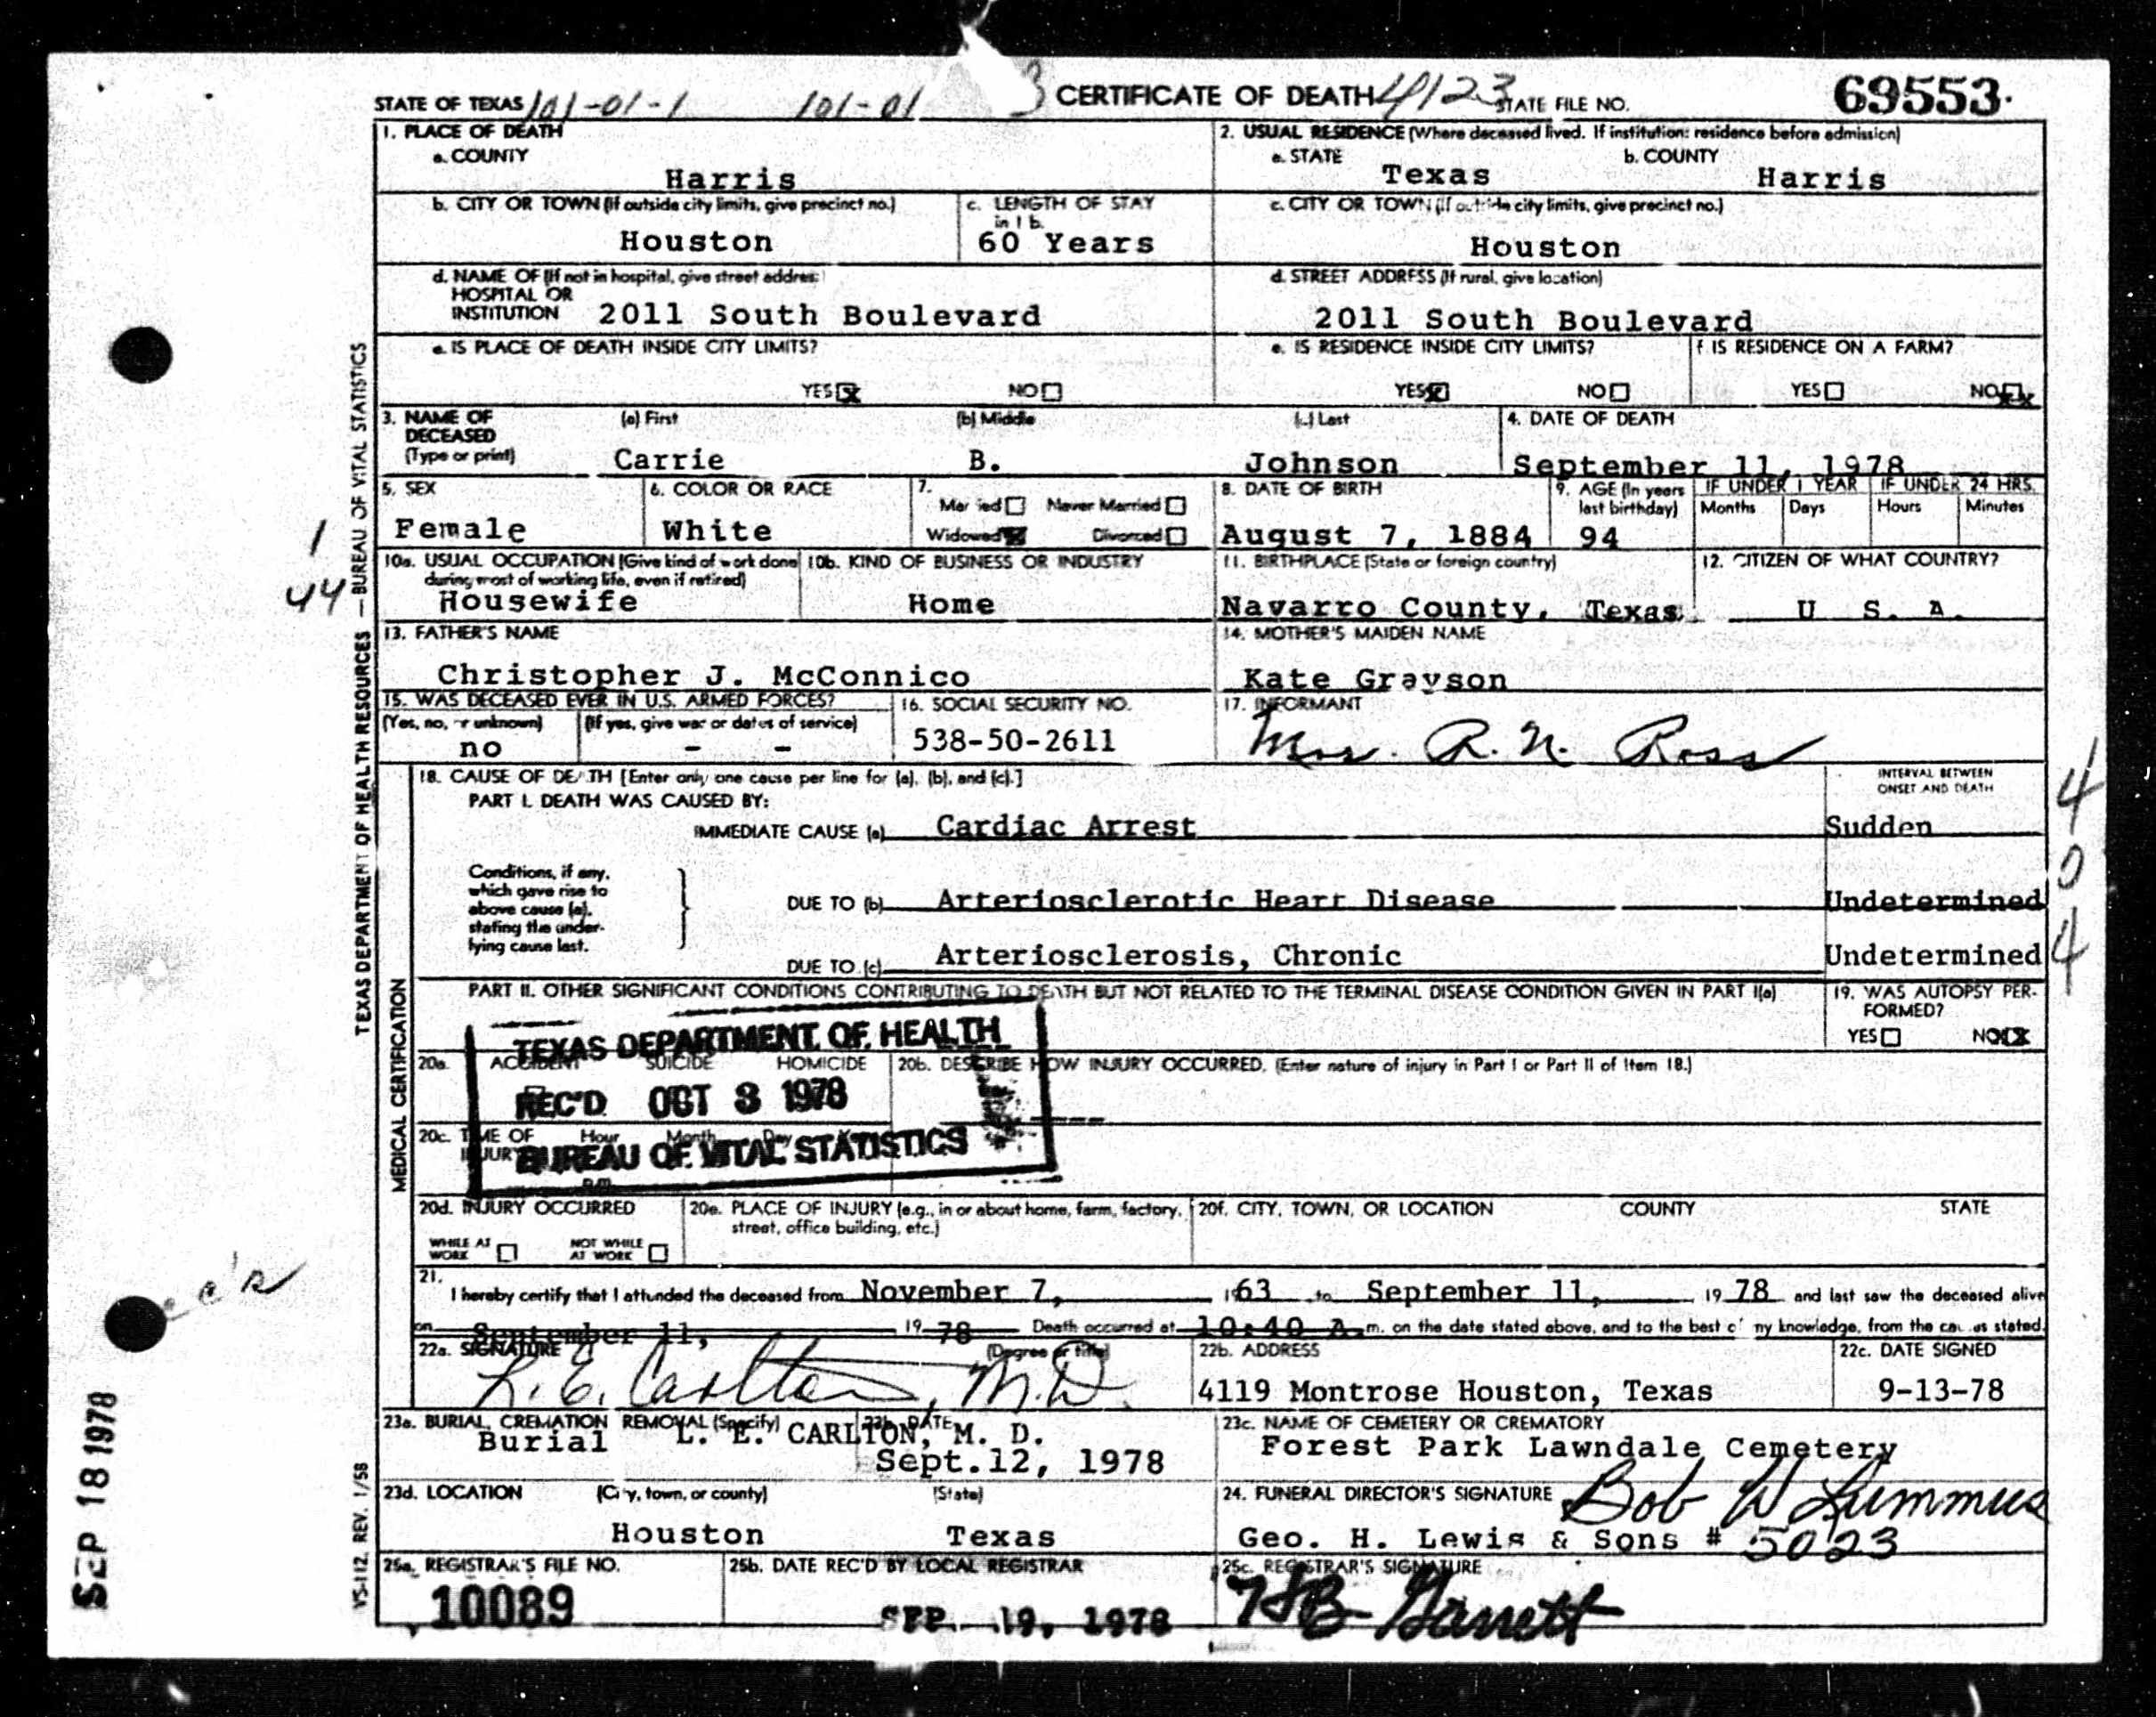 STATE OF TEXAS 101-01-1 101-01 3 CERTIFICATE OF DEATH 4123 STATE FILE NO. 69553
1. PLACE OF DEATH
a. COUNTY
Harris
2. USUAL RESIDENCE (Where deceased lived. If institution: residence before admission)
a. STATE b. COUNTY
Texas Harris
b. CITY OR TOWN (If outside city limits, give precinct no.)
Houston
c. LENGTH OF STAY
in 1 b.
60 Years
c. CITY OR TOWN (If outside city limits, give precinct no.)
Houston
d. NAME OF (If not in hospital, give street address)
HOSPITAL OR
INSTITUTION 2011 South Boulevard
d. STREET ADDRESS (If rural, give location)
2011 South Boulevard
e. IS PLACE OF DEATH INSIDE CITY LIMITS?
YES NO
e. IS RESIDENCE INSIDE CITY LIMITS?
YES NO
f. IS RESIDENCE ON A FARM?
YES NO
3. NAME OF
DECEASED
(Type or print)
(a) First (b) Middle (c) Last
Carrie B. Johnson
4. DATE OF DEATH
September 11, 1978
5. SEX
Female
6. COLOR OR RACE
White
7.
Married Never Married
Widowed Divorced
8. DATE OF BIRTH
August 7, 1884
9. AGE (In years
last birthday)
94
IF UNDER 1 YEAR IF UNDER 24 HRS.
Months Days Hours Minutes
10a. USUAL OCCUPATION (Give kind of work done
during most of working life, even if retired)
Housewife
10b. KIND OF BUSINESS OR INDUSTRY
Home
11. BIRTHPLACE (State or foreign country)
Navarro County, Texas
12. CITIZEN OF WHAT COUNTRY?
U S. A.
13. FATHER'S NAME
Christopher J. McConnico
14. MOTHER'S MAIDEN NAME
Kate Grayson
15. WAS DECEASED EVER IN U.S. ARMED FORCES?
(Yes, no, or unknown) (If yes, give war or dates of service)
no - -
16. SOCIAL SECURITY NO.
538-50-2611
17. INFORMANT
Mrs. R. N. Ross
18. CAUSE OF DEATH [Enter only one cause per line for (a), (b), and (c).]
PART I. DEATH WAS CAUSED BY:
INTERVAL BETWEEN
ONSET AND DEATH
IMMEDIATE CAUSE (a) Cardiac Arrest Sudden
Conditions, if any,
which gave rise to
above cause (a),
stating the under-
lying cause last.
DUE TO (b) Arteriosclerotic Heart Disease Undetermined
DUE TO (c) Arteriosclerosis, Chronic Undetermined
4
0
4
PART II. OTHER SIGNIFICANT CONDITIONS CONTRIBUTING TO DEATH BUT NOT RELATED TO THE TERMINAL DISEASE CONDITION GIVEN IN PART I(a)
19. WAS AUTOPSY PER-
FORMED?
YES NO
TEXAS DEPARTMENT OF HEALTH
REC'D OCT 3 1978
BUREAU OF VITAL STATISTICS
20a. ACCIDENT SUICIDE HOMICIDE
20b. DESCRIBE HOW INJURY OCCURRED. (Enter nature of injury in Part I or Part II of Item 18.)
20c. TIME OF
INJURY
Hour Month Day
p.m.
20d. INJURY OCCURRED
WHILE AT
WORK
NOT WHILE
AT WORK
20e. PLACE OF INJURY (e.g., in or about home, farm, factory,
street, office building, etc.)
20f. CITY, TOWN, OR LOCATION COUNTY STATE
21.
I hereby certify that I attended the deceased from November 7, 1963 to September 11, 19 78 and last saw the deceased alive
on September 11, 19 78 Death occurred at 10:40 A.m. on the date stated above, and to the best of my knowledge, from the causes stated.
22a. SIGNATURE (Degree or title)
L. E. Carlton, M.D.
22b. ADDRESS
4119 Montrose Houston, Texas
22c. DATE SIGNED
9-13-78
23a. BURIAL, CREMATION REMOVAL (Specify)
Burial
L. E. CARLTON, M. D.
23b. DATE
Sept.12, 1978
23c. NAME OF CEMETERY OR CREMATORY
Forest Park Lawndale Cemetery
23d. LOCATION (City, town, or county) (State)
Houston Texas
24. FUNERAL DIRECTOR'S SIGNATURE Bob W Lummus
Geo. H. Lewis & Sons # 5023
25a. REGISTRAR'S FILE NO.
10089
25b. DATE REC'D BY LOCAL REGISTRAR
SEP. 19, 1978
25c. REGISTRAR'S SIGNATURE
Garrett
TEXAS DEPARTMENT OF HEALTH RESOURCES — BUREAU OF VITAL STATISTICS
MEDICAL CERTIFICATION
VS-112, REV. 1/58
1
44
SEP 18 1978